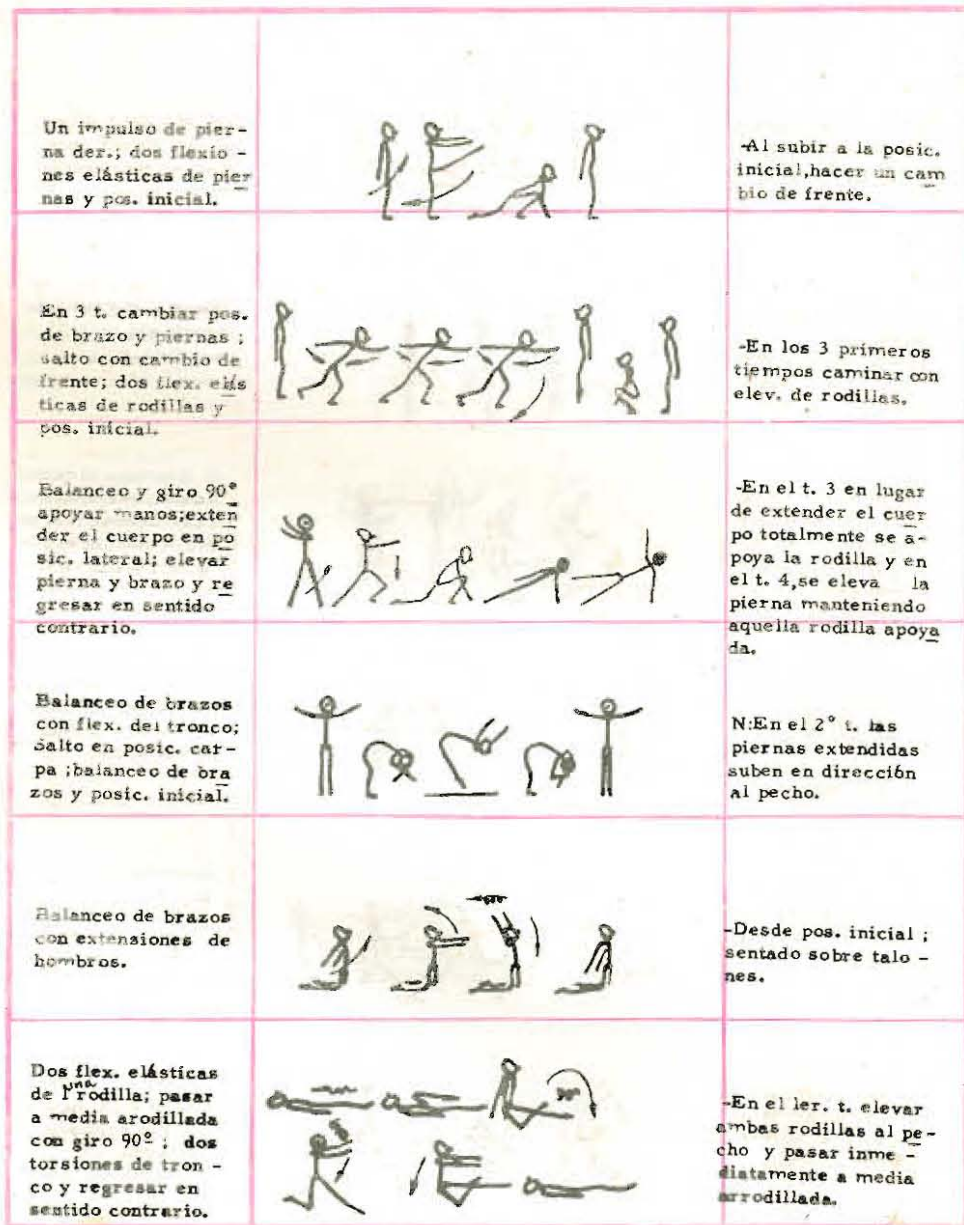 Un impulso de pier-
na der.; dos flexio -
nes elásticas de pier
nas y pos. inicial.
-Al subir a la posic.
inicial,hacer un cam
bio de frente.
En 3 t. cambiar pos.
de brazo y piernas ;
salto con cambio de
frente; dos flex. elás
ticas de rodillas y
pos. inicial.
-En los 3 primeros
tiempos caminar con
elev. de rodillas.
Balanceo y giro 90°
apoyar manos;exten
der el cuerpo en po
sic. lateral; elevar
pierna y brazo y re
gresar en sentido
contrario.
-En el t. 3 en lugar
de extender el cuer
po totalmente se a-
poya la rodilla y en
el t. 4,se eleva la
pierna manteniendo
aquella rodilla apoya
da.
Balanceo de brazos
con flex. del tronco;
Salto en posic. car-
pa ;balanceo de bra
zos y posic. inicial.
N:En el 2° t. las
piernas extendidas
suben en dirección
al pecho.
Balanceo de brazos
con extensiones de
hombros.
-Desde pos. inicial ;
sentado sobre talo -
nes.
Dos flex. elásticas
de una rodilla; pasar
a media arodillada
con giro 90º ; dos
torsiones de tron -
co y regresar en
sentido contrario.
90°
-En el 1er. t. elevar
ambas rodillas al pe-
cho y pasar inme -
diatamente a media
arrodillada.